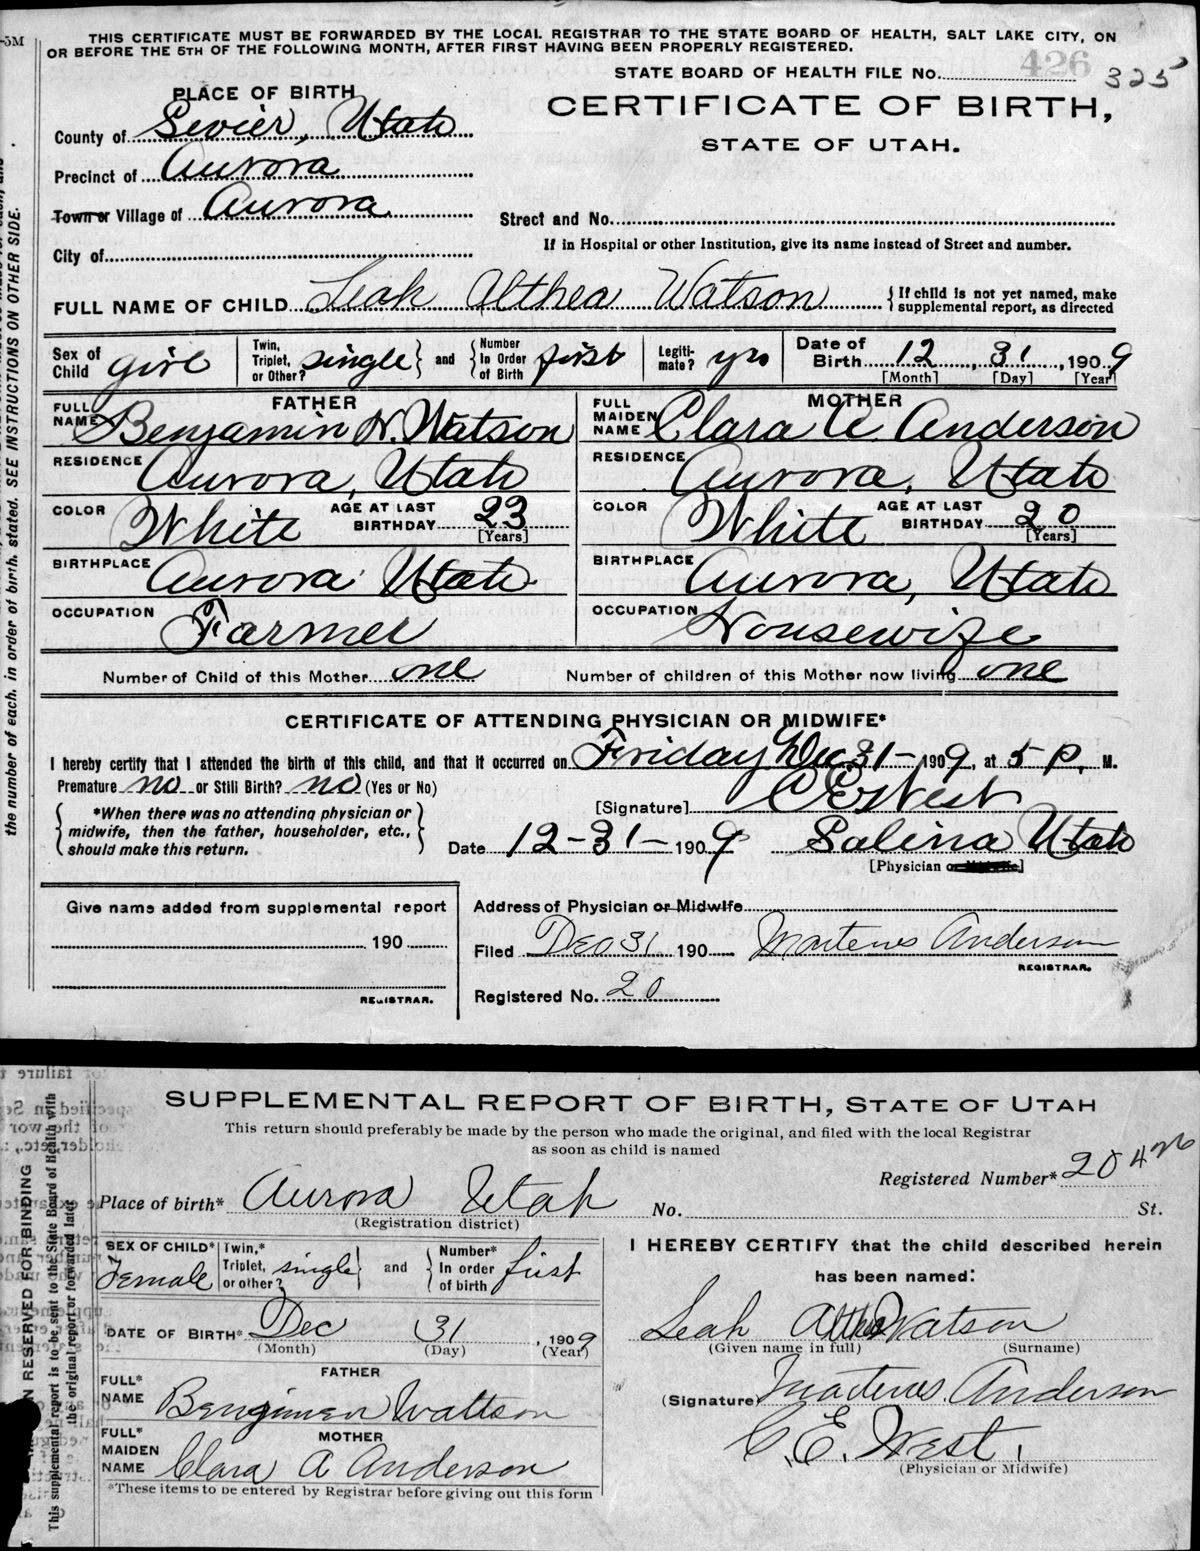 -5M
THIS CERTIFICATE MUST BE FORWARDED BY THE LOCAL REGISTRAR TO THE STATE BOARD OF HEALTH, SALT LAKE CITY, ON
OR BEFORE THE 5TH OF THE FOLLOWING MONTH, AFTER FIRST HAVING BEEN PROPERLY REGISTERED.
STATE BOARD OF HEALTH FILE No. 426 325
PLACE OF BIRTH
CERTIFICATE OF BIRTH,
STATE OF UTAH.
County of Sevier, Utah
Precinct of Aurora
Town or Village of Aurora
Street and No.
If in Hospital or other Institution, give its name instead of Street and number.
City of
FULL NAME OF CHILD Leah Althea Watson {If child is not yet named, make supplemental report, as directed
Sex of Child girl Twin, Triplet, or Other? single} and {Number In Order of Birth first Legiti-mate? yes Date of Birth 12, 31, 1909
[Month] [Day] [Year]
FATHER
FULL NAME Benjamin H. Watson
RESIDENCE Aurora, Utah
COLOR White AGE AT LAST BIRTHDAY 23 [Years]
BIRTHPLACE Aurora Utah
OCCUPATION Farmer
MOTHER
FULL MAIDEN NAME Clara A. Anderson
RESIDENCE Aurora, Utah
COLOR White AGE AT LAST BIRTHDAY 20 [Years]
BIRTHPLACE Aurora, Utah
OCCUPATION Housewife
Number of Child of this Mother one Number of children of this Mother now living one
CERTIFICATE OF ATTENDING PHYSICIAN OR MIDWIFE*
I hereby certify that I attended the birth of this child, and that it occurred on Friday Dec 31- 1909, at 5 P, M.
Premature no or Still Birth? no (Yes or No)
{*When there was no attending physician or
midwife, then the father, householder, etc.,
should make this return.}
[Signature] C E West
Date 12-31- 1909 Salina Utah
[Physician or Midwife]
Give name added from supplemental report
190
REGISTRAR.
Address of Physician or Midwife
Filed Dec 31 190 Martenus Anderson
REGISTRAR.
Registered No. 20
the number of each, in order of birth, stated. SEE INSTRUCTIONS ON OTHER SIDE.
SUPPLEMENTAL REPORT OF BIRTH, STATE OF UTAH
This return should preferably be made by the person who made the original, and filed with the local Registrar
as soon as child is named
Registered Number* 20 426
Place of birth* Aurora Utah No. St.
(Registration district)
SEX OF CHILD* Female Twin,* Triplet, or other? single} and {Number* In order of birth first
DATE OF BIRTH* Dec 31, 1909
(Month) (Day) (Year)
FATHER
FULL* NAME Bengimen Wattson
MOTHER
FULL* MAIDEN NAME Clara A Anderson
*These items to be entered by Registrar before giving out this form
I HEREBY CERTIFY that the child described herein
has been named:
Leah Althea Watson
(Given name in full) (Surname)
(Signature) Martenus Anderson
C. E. West.
(Physician or Midwife)
N RESERVED FOR BINDING
This supplemental report is to be sent to the State Board of Health with
the original report or forwarded later